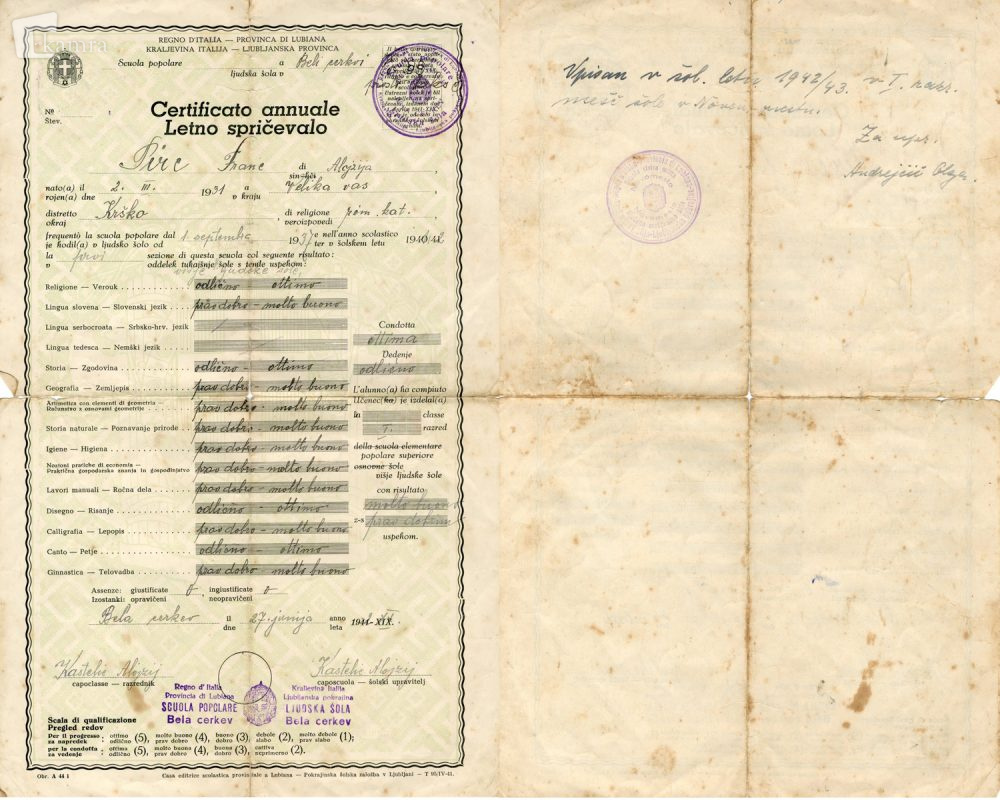 kamra
REGNO D'ITALIA — PROVINCA DI LUBIANA
KRALJEVINA ITALIJA — LJUBLJANSKA PROVINCA
Scuola popolare a Beli cerkvi
ljudska šola v
Nº
Štev.
Certificato annuale
Letno spričevalo
Pirc Franc di Alojzija,
sin-hči
nato(a) il 2. III. 1931 a Velika vas,
rojen(a) dne v kraju
distretto Krško, di religione rim. kat.,
okraj veroizpovedi
frequentò la scuola popolare dal 1 septembra 1937 e nell'anno scolastico
je hodil(a) v ljudsko šolo od ter v šolskem letu 1941/42
la prvi sezione di questa scuola col seguente risultato:
v oddelek tukajšnje šole s temle uspehom:
višje ljudske šole,
Religione — Verouk odlično ottimo
Lingua slovena — Slovenski jezik prav dobro - molto buono
Lingua serbocroata — Srbsko-hrv. jezik
Lingua tedesca — Nemški jezik
Storia — Zgodovina odlično - ottimo
Geografia — Zemljepis prav dobro - molto buono
Aritmetica con elementi di geometria —
Računstvo z osnovami geometrije prav dobro - molto buono
Storia naturale — Poznavanje prirode prav dobro - molto buono
Igiene — Higiena prav dobro - molto buono
Nozioni pratiche di economia —
Praktična gospodarska znanja in gospodinjstvo prav dobro - molto buono
Lavori manuali — Ročna dela prav dobro - molto buono
Disegno — Risanje odlično - ottimo
Calligrafia — Lepopis prav dobro - molto buono
Canto — Petje odlično - ottimo
Ginnastica — Telovadba prav dobro - molto buono
Condotta
ottima
Dedenje
odlično
L'alunno(a) ha compiuto
Učenec(ka) je izdelal(a)
la classe
I. razred
della scuola elementare
popolare superiore
osnovne šole
višje ljudske šole
con risultato
molto buono
z-s prav dobrim
uspehom.
Assenze: giustificate 0, ingiustificate 0
Izostanki: opravičeni neopravičeni
Bela cerkev il 27. junija anno
dne leta 1941-XIX.
Kastelic Alojzij Kastelic Alojzij
capoclasse — razrednik caposcuola — šolski upravitelj
Regno d'Italia
Provincia di Lubiana
SCUOLA POPOLARE
Bela cerkev
Kraljevina Italija
Ljubljanska pokrajina
LJUDSKA ŠOLA
Bela cerkev
Scala di qualificazione
Pregled redov
Per il progresso: ottimo (5), molto buono (4), buono (3), debole (2), molto debole (1);
za napredek: odlično prav dobro dobro slabo prav slabo
per la condotta: ottimo (5), molto buono (4), buono (3), cattiva (2).
za vedenje: odlično prav dobro dobro neprimerno
Obr. A 44 1
Casa editrice scolastica provinciale a Lubiana — Pokrajinska šolska založba v Ljubljani — T 95/IV-41.
Vpisan v šol. letu 1942/43. v I. razr.
mešč. šole v Novem mestu.
Za upr.
Andrejčič Olga.